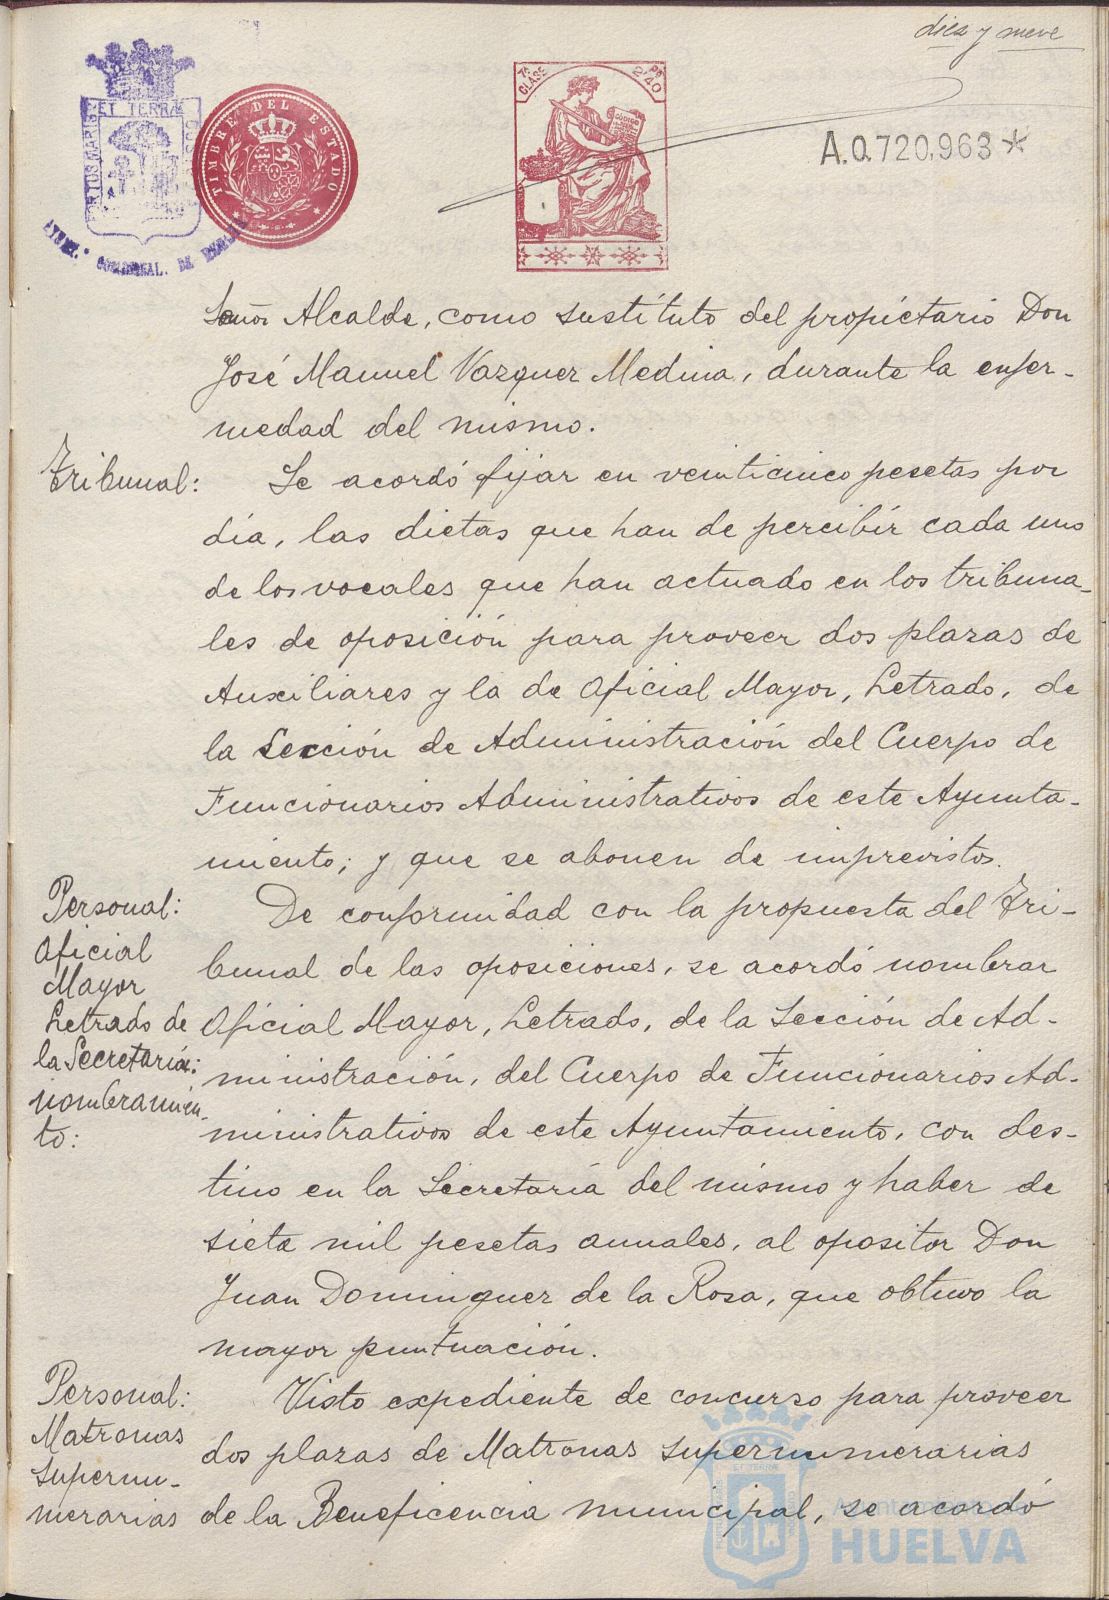 diez y nueve
PORTUS MARIS ET TERRÆ
TIMBRE DEL ESTADO
7ª CLASE
2'40
CODIGO
A.0.720.963*
Señor Alcalde, como sustituto del propietario Don
José Manuel Vazquez Medina, durante la enfer-
medad del mismo.
Tribunal:
Se acordó fijar en veinticinco pesetas por
día, las dietas que han de percibir cada uno
de los vocales que han actuado en los tribuna-
les de oposición para proveer dos plazas de
Auxiliares y la de Oficial Mayor, Letrado, de
la Sección de Administración del Cuerpo de
Funcionarios Administrativos de este Ayunta-
miento; y que se abonen de imprevistos.
Personal:
Oficial
Mayor
Letrado de
la Secretaría:
nombramien-
to:
De conformidad con la propuesta del Tri-
bunal de las oposiciones, se acordó nombrar
Oficial Mayor, Letrado, de la Sección de Ad-
ministración, del Cuerpo de Funcionarios Ad-
ministrativos de este Ayuntamiento, con des-
tino en la Secretaría del mismo y haber de
siete mil pesetas anuales, al opositor Don
Juan Dominguez de la Rosa, que obtuvo la
mayor puntuación.
Personal:
Matronas
supernu-
merarias
Visto expediente de concurso para proveer
dos plazas de Matronas supernumerarias
de la Beneficencia municipal, se acordó
Ayuntamiento de
HUELVA